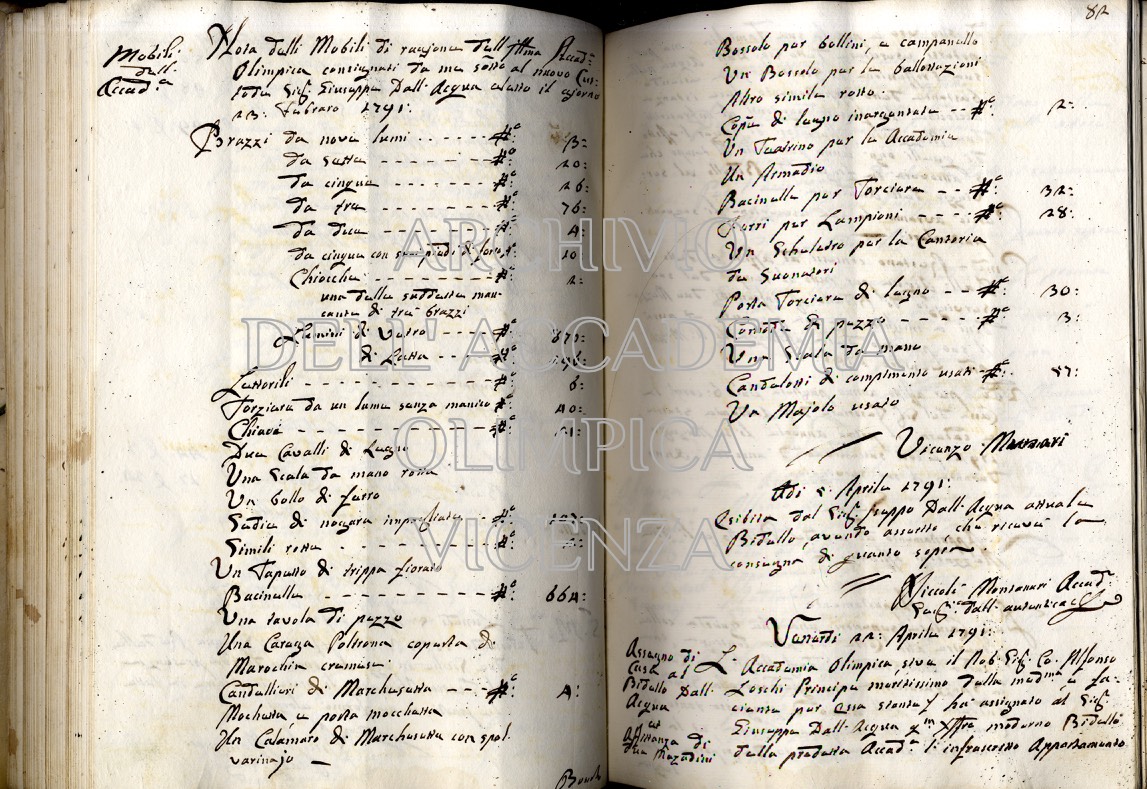 Mobili
dell'
Accad.a
Nota delli Mobili di raggione dell'Illma Accad.a
Olimpica consignati da me sotto al nuovo Cus-
tode Sig.r Giuseppe Dall'Acqua adesso il giorno
23: Febraro 1791:
Brazzi da nove lumi - - - - N.o 3:
da sette - - - - N.o 20:
da cinque - - - - N.o 26:
da tre - - - - N.o 76:
da due - - - - N.o 4:
da cinque con suoi piedi di ferro N.o 10:
Chiocche - - - - N.o 2:
una delle suddette man-
cante di tre brazzi
Lumini di Vetro - - N.o
di Latta - - - - N.o
Lettorili - - - - N.o 6:
Torziere da un lume senza manico N.o 40:
Chiave - - - - N.o
Due Cavalli di Legno
Una Scala da mano rotta
Un bollo di ferro
Sedie di nogara impagliate - - N.o
Simili rotte - - - - N.o
Un Tapetto di trippa fiorato
Bacinelle - - - - N.o 664:
Una tavola di pezzo
Una Carega Poltrona coperta di
Marochin cremese
Candellieri di Marchesetta - - - N.o 4:
Mochetta e porta mochetta
Un Calamaro di Marchesetta con spol-
varinajo
82
Bossolo per bollini, e campanello
Un Bossolo per le ballottazioni
Altro simile rotto
Copie di legno inargentate - - N.o 2:
Un Taierino per la Accademia
Un Armadio
Bacinelle per Torciere - - N.o 32:
Ferri per Lampioni - - - - N.o 28:
Un Scheletro per la Cantoria
da Suonatori
Porta Torciere di legno - - N.o 30:
di pezzo - - - - N.o 3:
Una Scala da mano
Candelotti di complimento usati N.o 57:
Un Majolo usato
Vicenzo
Adi 5 Aprile 1791:
Esibita dal Sig.r Iseppo Dall'Acqua attuale
Bidello, avendo asserito che riceve la
consegna di quanto sopra.
Niccolò Montanari Accad.o
Seg.o dall. autentica
Venerdì 22: Aprile 1791:
Assegno di
Casa al
Bidello Dall'
Acqua
et
di
due Mezadini
L'Accademia Olimpica, sive il Nob. Sig.r Co. Alfonso
Loschi Principe meritissimo della medma, e fa-
ciente per essa stante, ha assignato al Sig.r
Giuseppe Dall'Acqua qm moderno Bidello
della predetta Accad.a l'infrascritto Appartamento
ARCHIVIO
DELL'ACCADEMIA
OLIMPICA
VICENZA